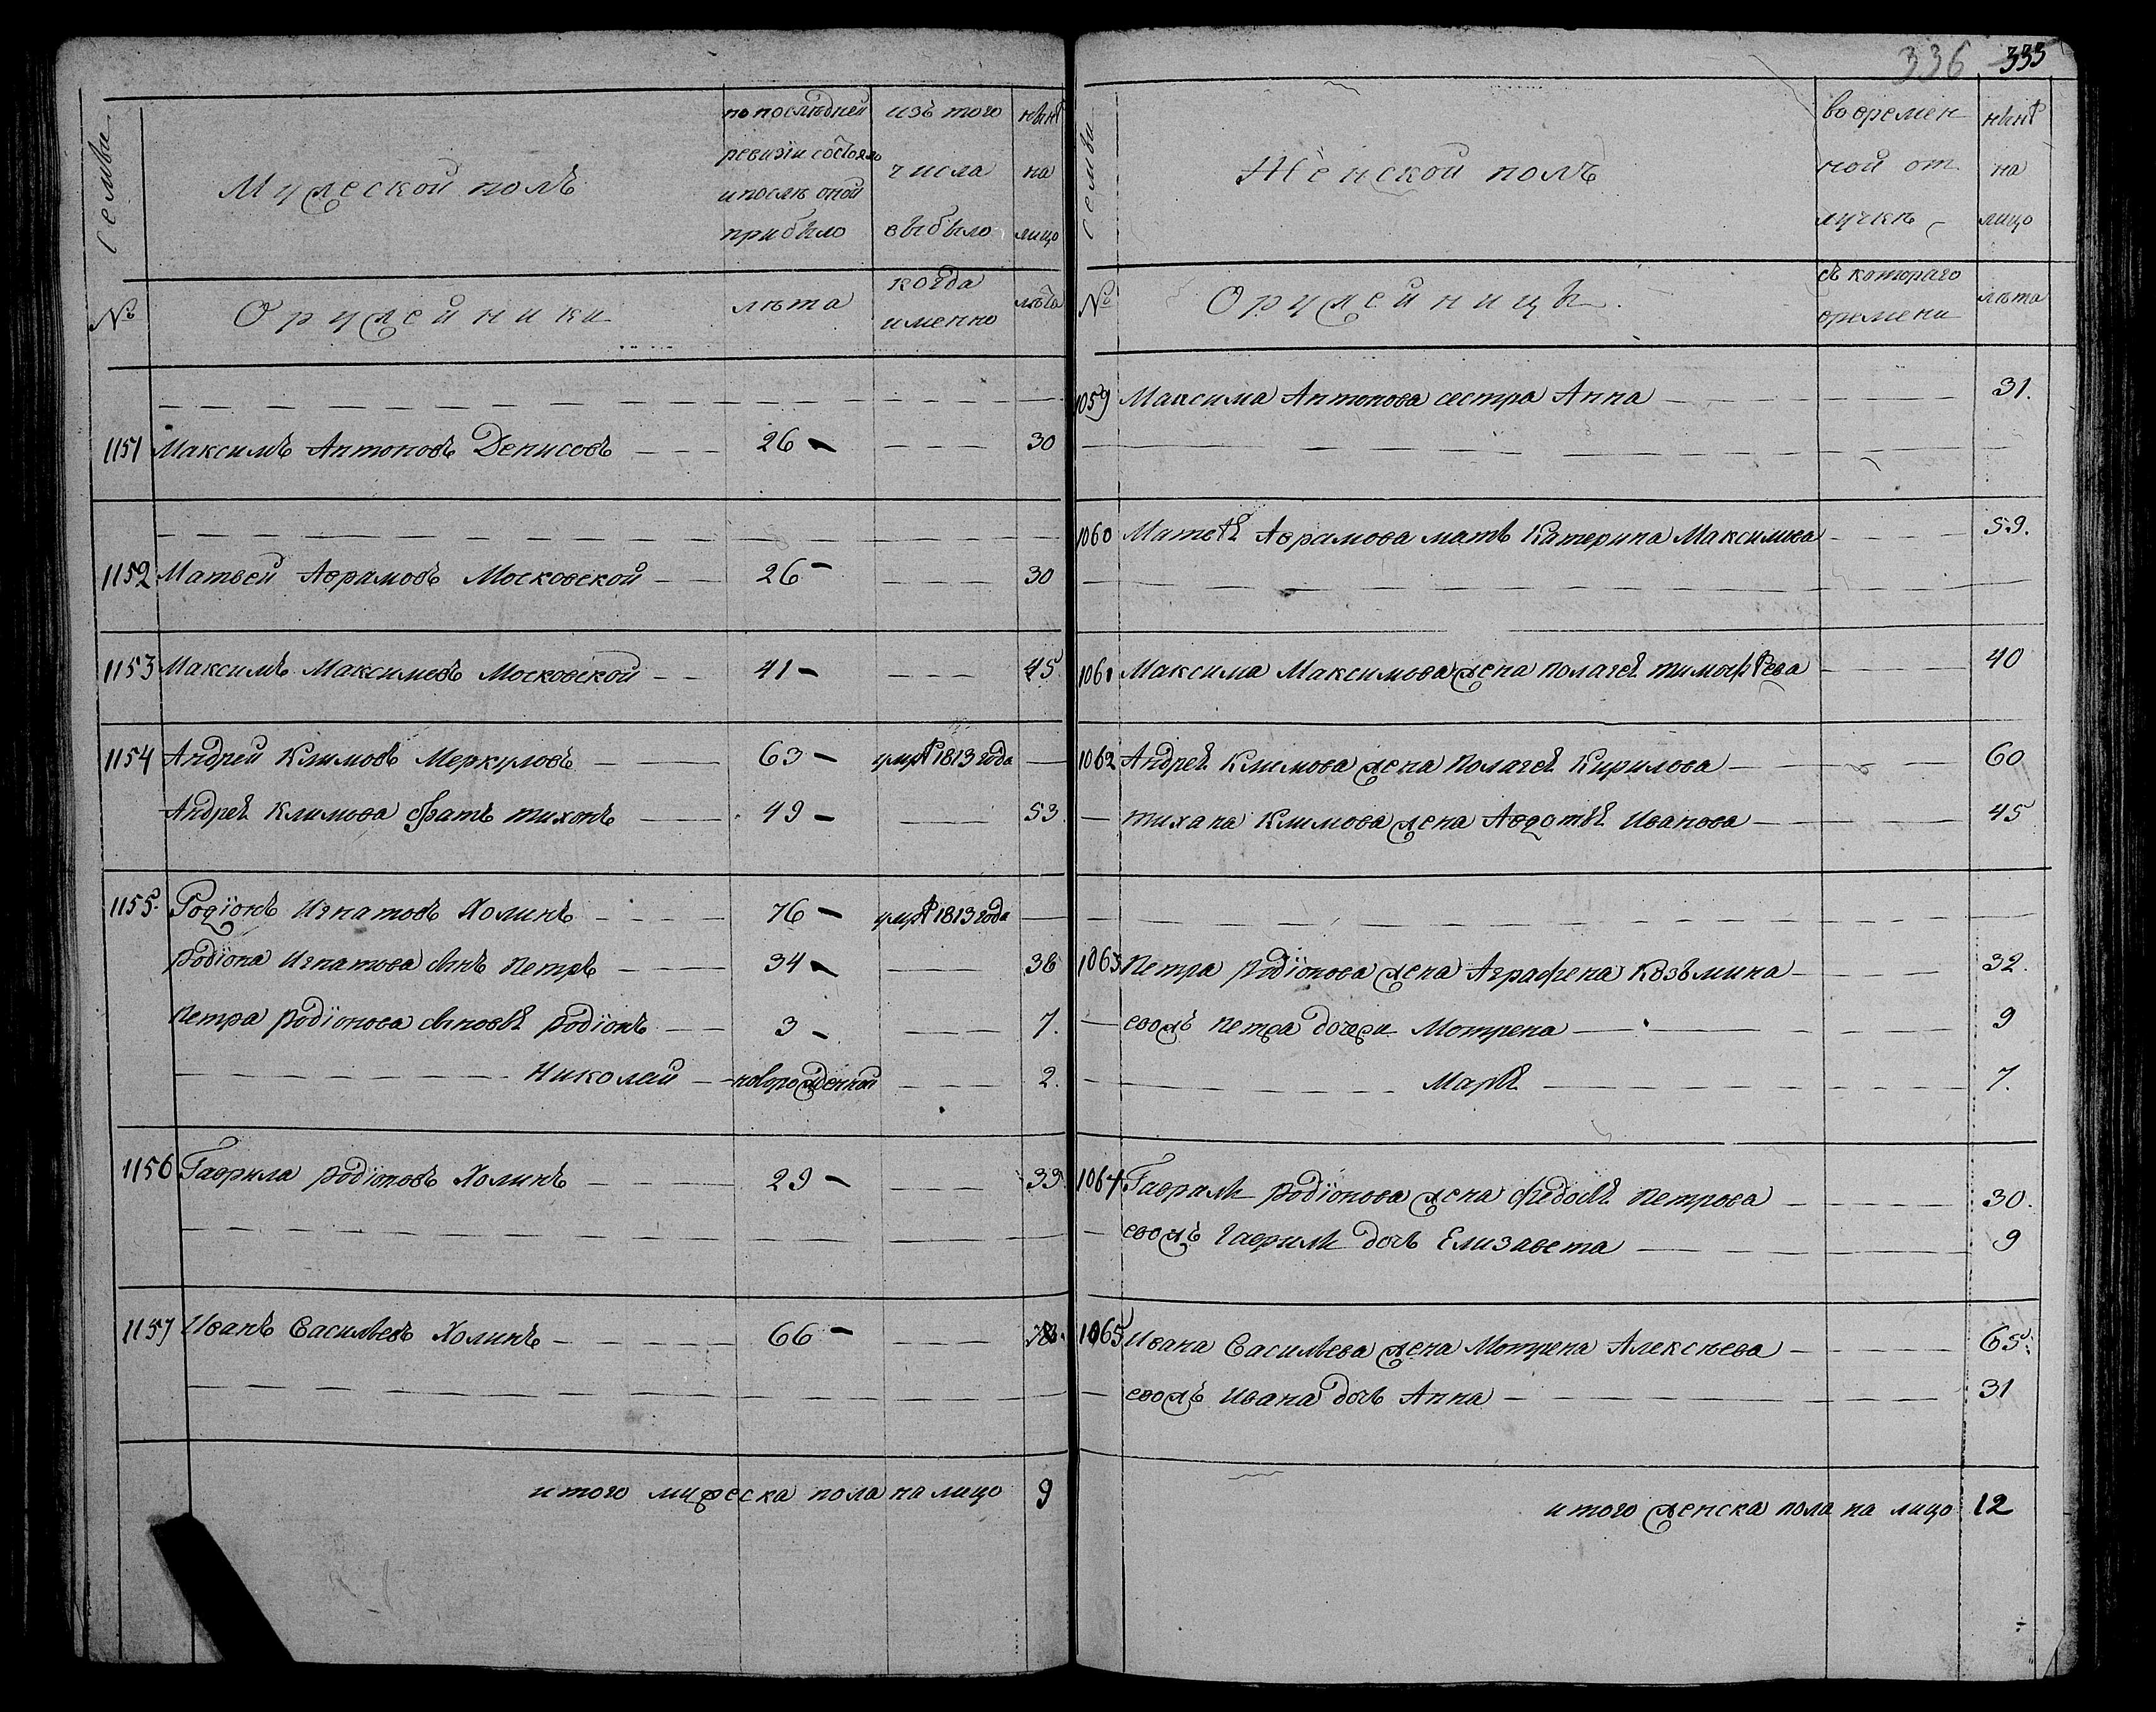 семьи
Мужеской полъ
по последней
ревизіи состояло
и после оной
прибыло
изъ того
числа
выбыло
ныне
на
лицо
№
Оружейники
лета
когда
именно
лета
1151 Максимъ Антоновъ Денисовъ 26 30
1152 Матвей Аврамовъ Московской 26 30
1153 Максимъ Максимовъ Московской 41 45
1154 Андрей Климовъ Меркуловъ 63 умре 1813 года
Андрея Климова братъ тихонъ 49 53
1155 Родіонъ Игнатовъ Холинъ 76 умре 1813 года
Родіона Игнатова сынъ Петръ 34 38
Петра Родіонова сыновья Родіонъ 3 7.
Николай новорожденной 2.
1156 Гаврила Родіоновъ Холинъ 29 33
1157 Иванъ Васильевъ Холинъ 66
итого мужеска пола на лицо 9
336 335
семьи
Женской полъ
во времен
ной от
лучке
ныне
на
лицо
№
Оружейницы
съ котораго
времени
лета
1059 Максима Антонова сестра Анна 31.
1060 Матвея Аврамова мать Катерина Максимова 59.
1061 Максима Максимова жена полагея тимофеева 40
1062 Андрея Климова жена полагея Кирилова 60
тихана Климова жена Авдотья Иванова 45
1063 Петра Родіонова жена Аграфена Козьмина 32.
евожъ петра дочери Мотрена 9
Марья 7.
1064 Гаврилы Родіонова жена федосья Петрова 30.
евожъ Гаврилы дочь Елизавета 9
1065 Ивана Васильева жена Мотрена Алексеева 65.
евожъ Ивана дочь Анна 31
итого женска пола на лицо 12